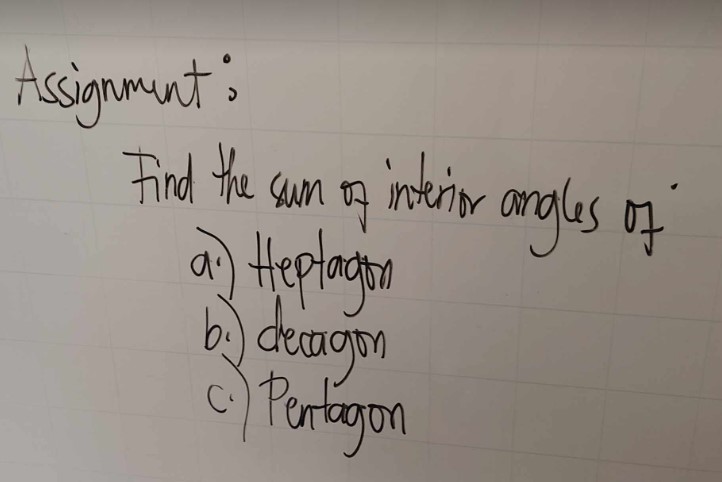 Assignment:
Find the sum of interior angles of
a.) Heptagon
b.) decagon
c.) Pentagon